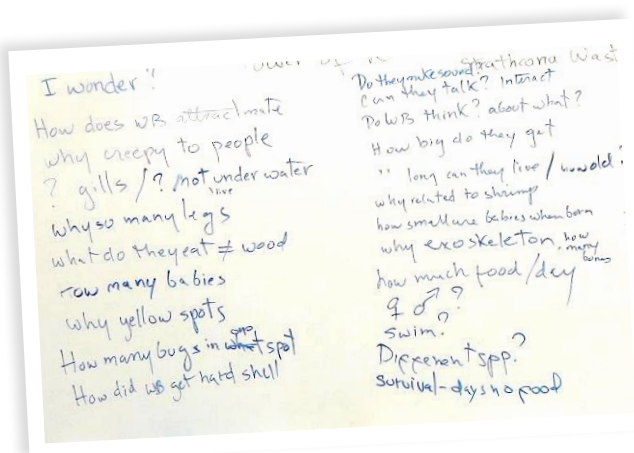 I wonder?
How does WB attract mate
why creepy to people
? gills / ? not under water
live
why so many legs
what do they eat ≠ wood
how many babies
why yellow spots
How many bugs in spot
How did WB get hard shell
Strathcona Wast
Do they make sound?
Can they talk? Interact
Do WB think? about what?
How big do they get
" long can they live / how old?
why related to shrimp
how small are babies when born
why exoskeleton, how many bones
how much food/day
♀ ♂ ?
Swim?
Different spp.?
survival - days no food